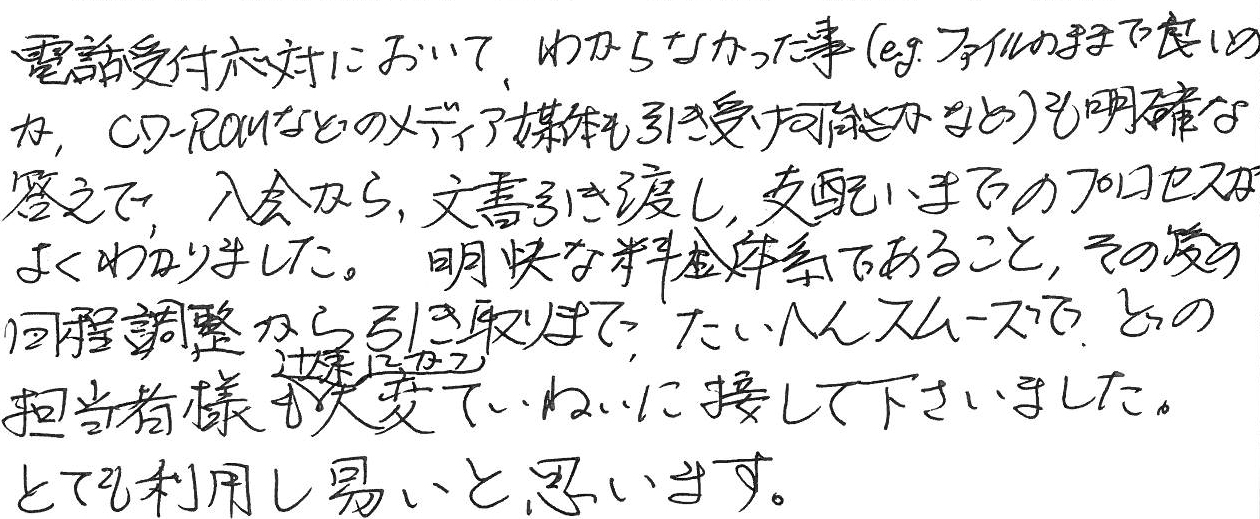 電話受付応対において、わからなかった事(eg.ファイルのままで良いの
か, CD-ROMなどのメディア媒体も引き受け可能かなど)も明確な
答えで, 入会から, 文書引き渡し, 支配いまでのプロセスが
よくわかりました。 明快な料金体系であること, その後の
日程調整から引き取りまで, たいへんスムーズで, どの
担当者様も迅速にかつ大変ていねいに接して下さいました。
とても利用し易いと思います。